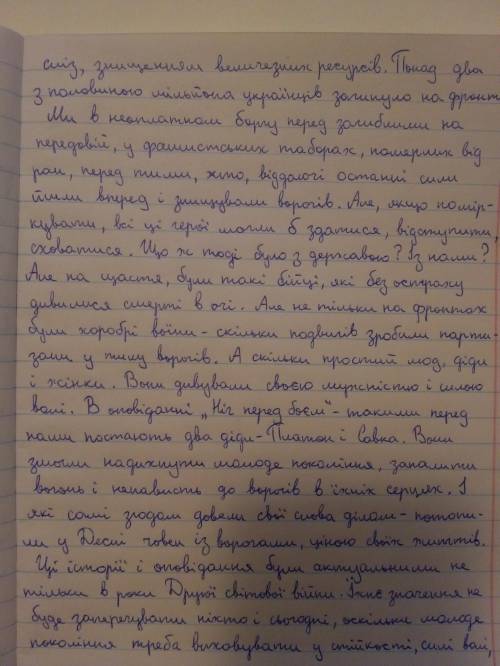 сміз, знищенням величезних ресурсів. Понад два
з половиною мільйона українців загинуло на фронт
Ми в неоплатном боргу перед загиблими на
передовій, у фашистських таборах, померлих від
ран, перед тими, хто, віддаючі останні сили
йшли вперед і знищували ворогів. Але, якщо помір-
кувати, всі ці герої могли б здатися, відступити,
сховатися. Що ж тоді було з державою? Із нами?
Але на щастя, були такі бійці, які без остраху
дивилися смерті в очі. Але не тільки на фронтах
були хоробрі воїни - скільки подвигів зробили парти-
зани у тилу ворогів. А скільки простий люд, діди
і жінки. Вони дивували своєю мужністю і силою
волі. В оповіданні „Ніч перед боєм" - такими перед
нами постають два діди - Платон і Савка. Вони
змогли надихнути молоде покоління, запалити
вогонь і ненависть до ворогів в їхніх серцях. І
які самі згодом довели свої слова ділом - потопи-
ли у Десні човен із ворогами, ціною своїх життів.
Ці історії і оповідання були актуальними не
тільки в роки Другої світової війни. Їхнє значення не
буде заперечувати ніхто і сьогодні, оскільки молоде
покоління треба виховувати у стійкості, силі волі,